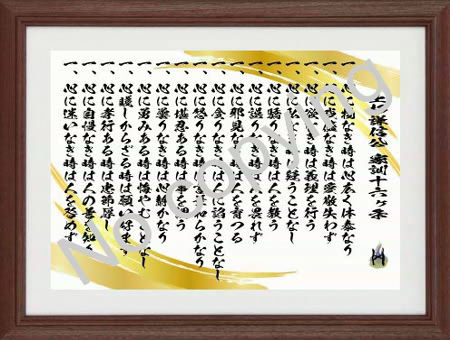 上杉謙信公 家訓十六ヶ条
一、心に物なき時は心広く体泰なり
一、心に我儘なき時は愛敬失わず
一、心に欲なき時は義理を行う
一、心に私なき時は疑うことなし
一、心に驕りなき時は人を教う
一、心に誤りなき時は人を畏れず
一、心に邪見なき時は人を育つる
一、心に貪りなき時は人に諂うことなし
一、心に怒りなき時は言葉和らかなり
一、心に堪忍ある時は事を調う
一、心に曇りなき時は心静かなり
一、心に勇みある時は悔やむことなし
一、心賤しからざる時は願い好まず
一、心に孝行ある時は忠節厚し
一、心に自慢なき時は人の善を知り
一、心に迷いなき時は人を咎めず
No copying